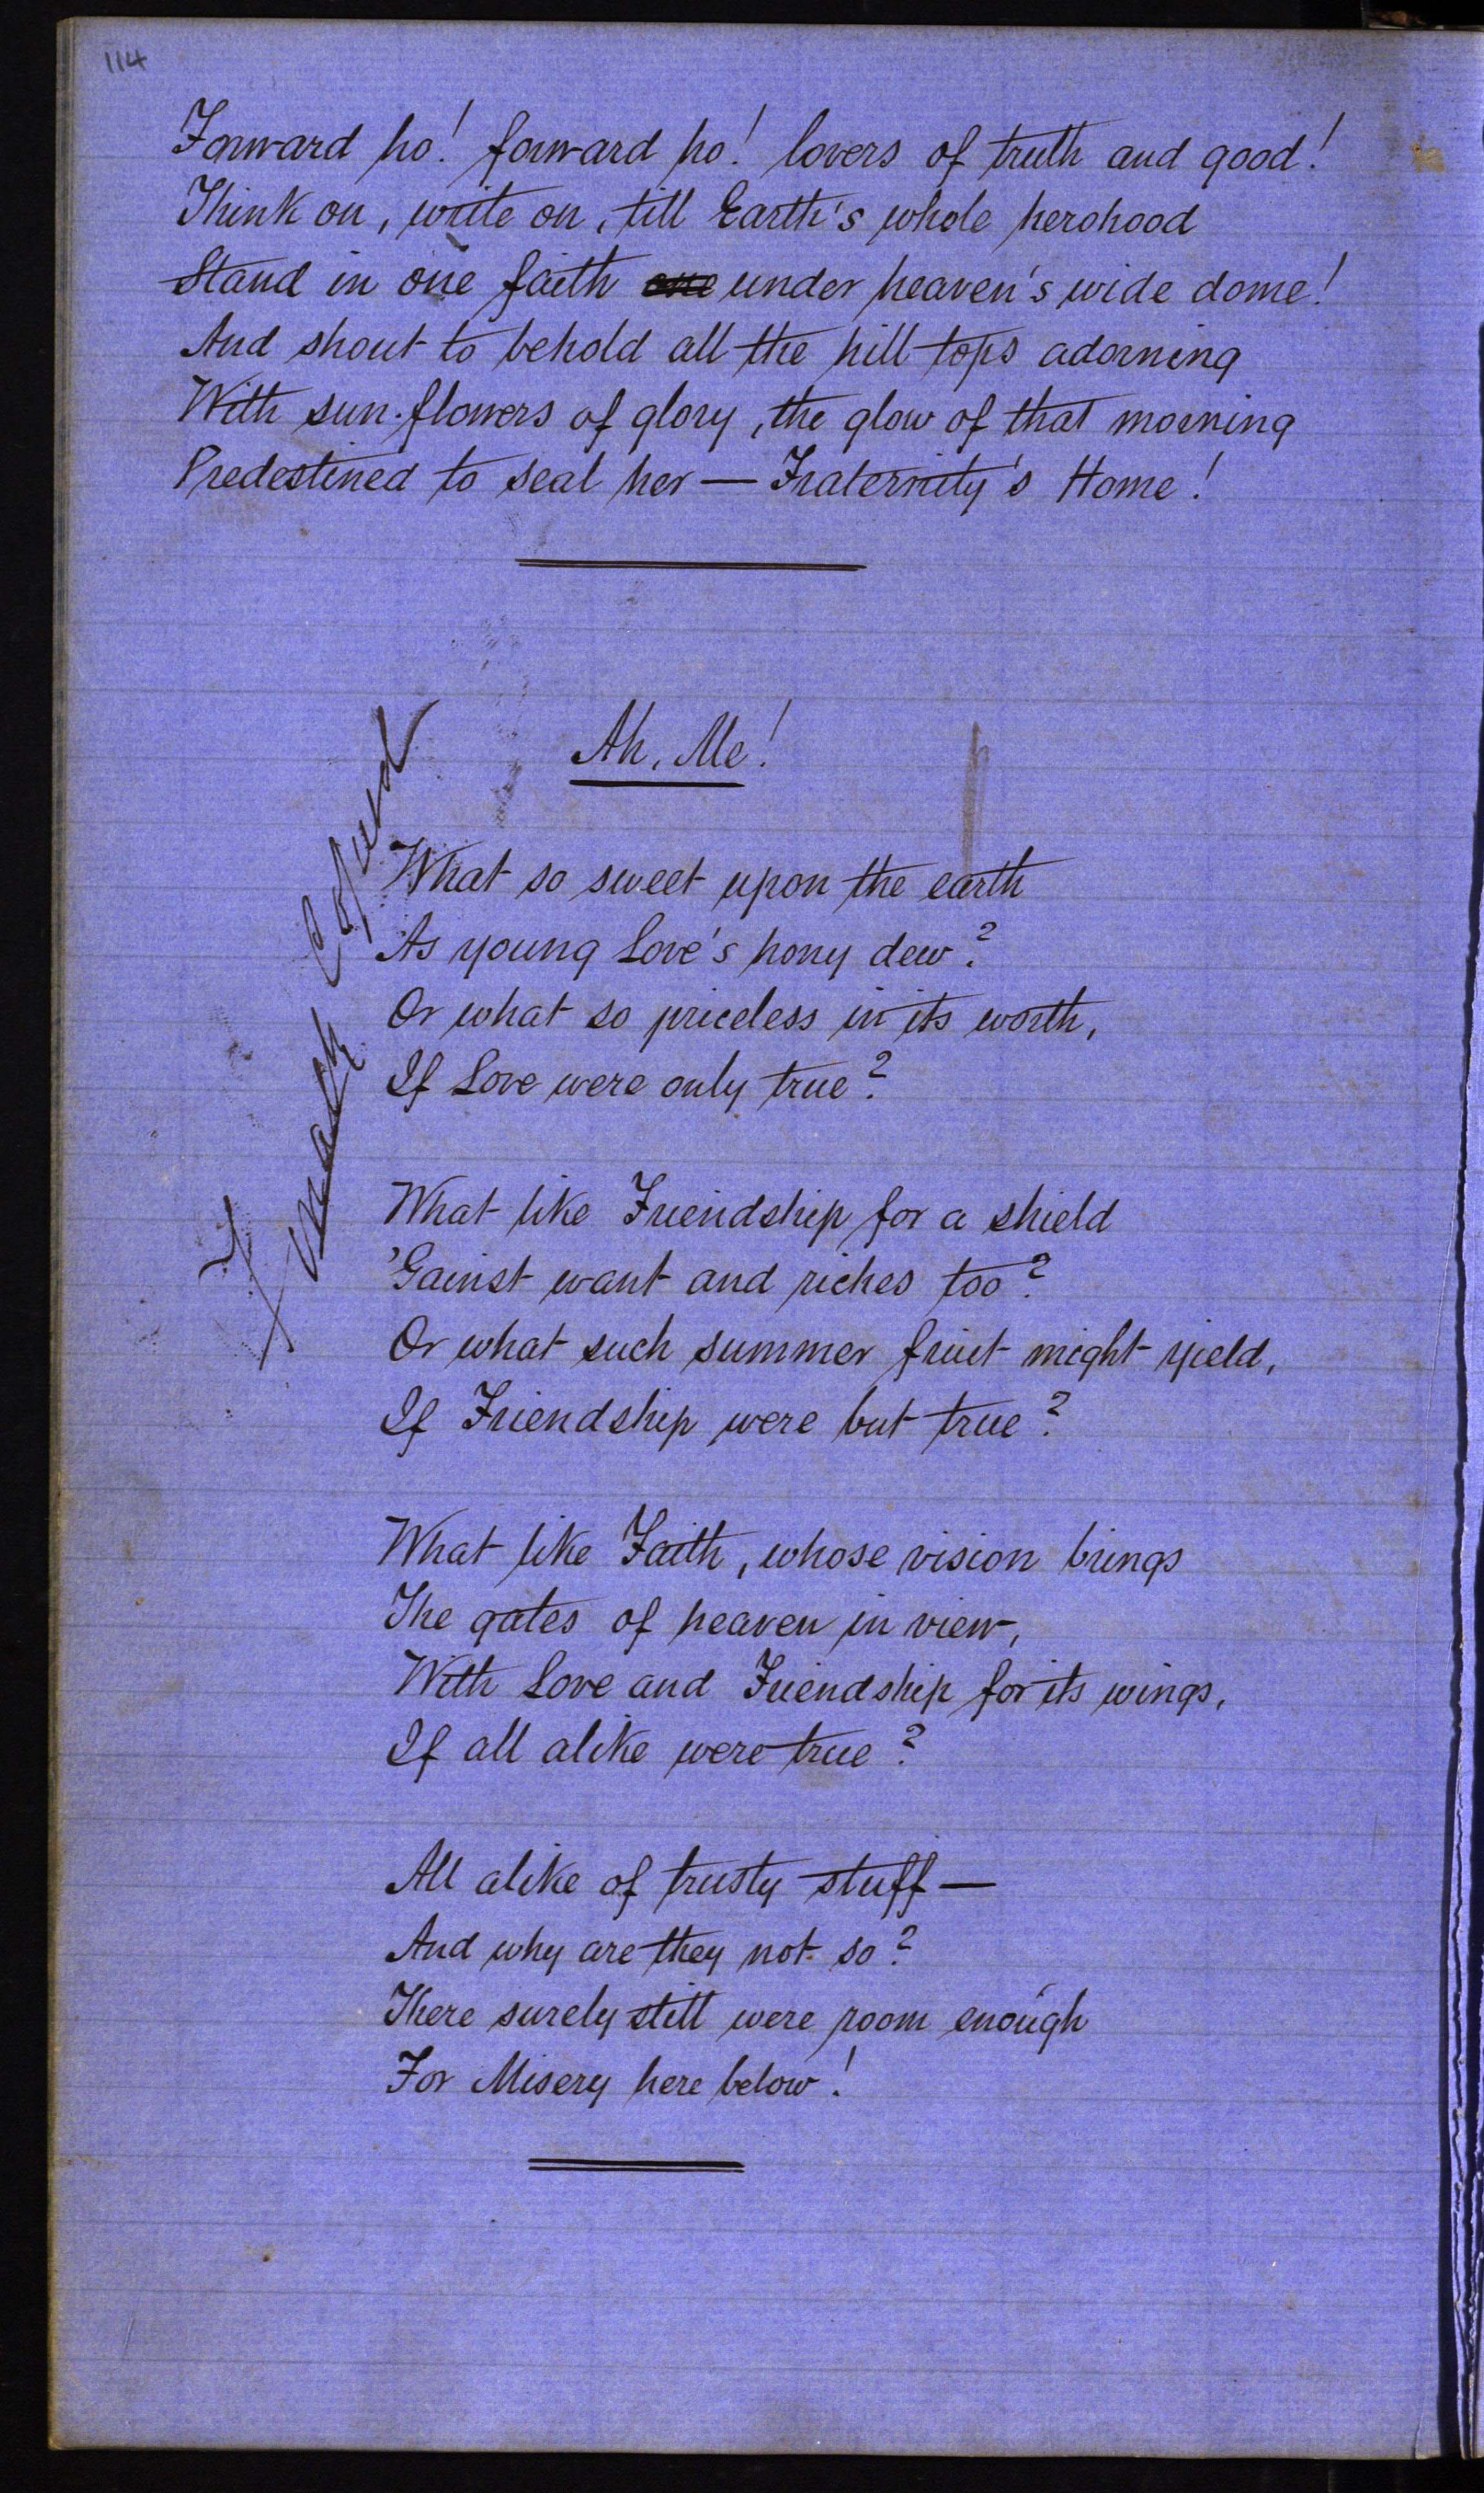 114
Forward ho! forward ho! lovers of truth and good!
Think on, write on, till Earth's whole herohood
Stand in one faith one under heaven's wide dome!
And shout to behold all the hill tops adorning
With sun-flowers of glory, the glow of that morning
Predestined to seal her — Fraternity's Home!
Ah, Me!
What so sweet upon the earth
As young Love's hony dew?
Or what so priceless in its worth,
If Love were only true?
What like Friendship for a shield
'Gainst want and riches too?
Or what such summer fruit might yield,
If Friendship were but true?
What like Faith, whose vision brings
The gates of heaven in view,
With Love and Friendship for its wings,
If all alike were true?
All alike of trusty stuff —
And why are they not so?
There surely still were room enough
For Misery here below!